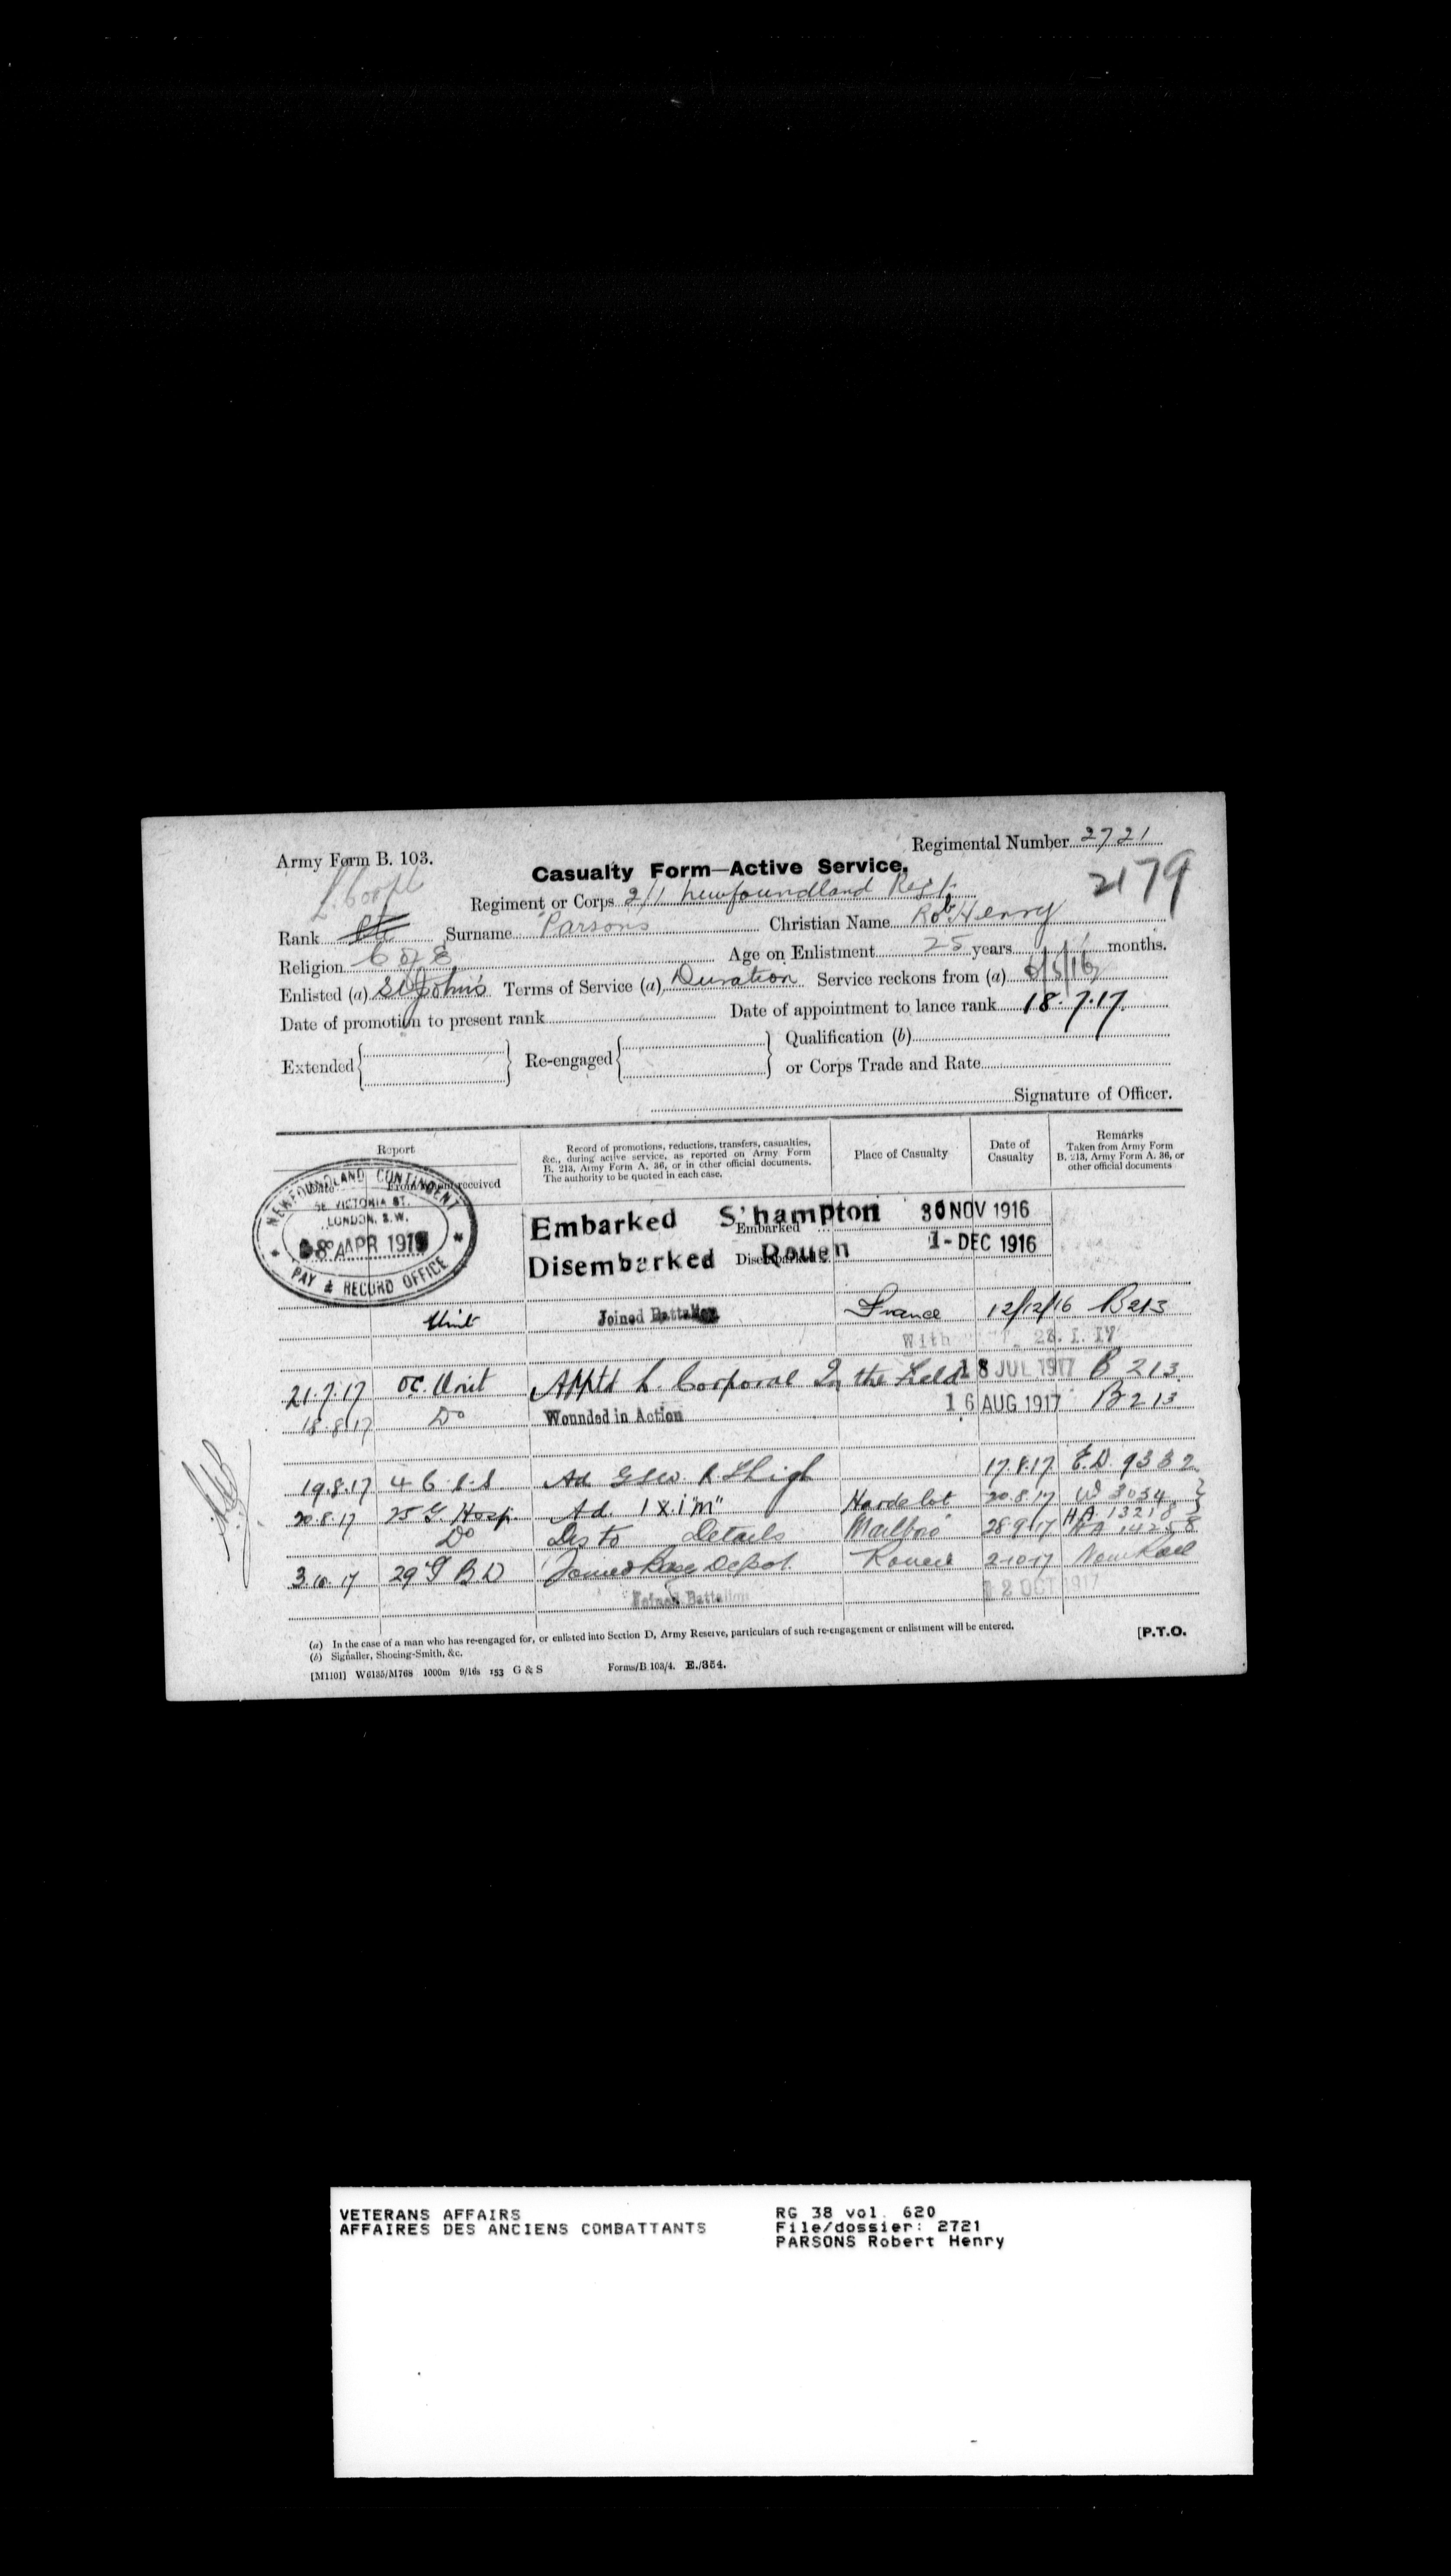 Regimental Number 2721
Army Form B. 103.
Casualty Form—Active Service.
2179
L. Corpl
Regiment or Corps 2/1 Newfoundland Regt.
Rank Pte Surname Parsons Christian Name Robt Henry
Religion C of E Age on Enlistment 25 years months.
Enlisted (a) St Johns Terms of Service (a) Duration Service reckons from (a) 6/5/16
Date of promotion to present rank Date of appointment to lance rank 18.7.17.
Extended Re-engaged Qualification (b)
or Corps Trade and Rate
Signature of Officer.
Report
Date From whom received
Record of promotions, reductions, transfers, casualties, &c., during active service, as reported on Army Form B. 213, Army Form A. 36, or in other official documents. The authority to be quoted in each case.
Place of Casualty
Date of Casualty
Remarks
Taken from Army Form B. 213, Army Form A. 36, or other official documents
NEWFOUNDLAND CONTINGENT
58 VICTORIA ST.
LONDON, S.W.
8 APR 191
PAY & RECORD OFFICE
Embarked S'hampton Embarked 30 NOV 1916
Disembarked Rouen Disembarked 1 - DEC 1916
Unit Joined Battalion France 12/12/16 B213
With 28. 1. 17
21.7.17 O.C. Unit Apptd L. Corporal In the Field 18 JUL 1917 B 213
18.8.17 Do Wounded in Action 16 AUG 1917 B213
19.8.17 4 C.C.S. Ad GSW. R. Thigh 17.8.17 E.D. 9332
20.8.17 25 G Hosp. Ad. 1 x 1 "m" Hardelot 20.8.17 W 3034
HA 13218
Do Dis to Details 28.9.17 HA 14258
3.10.17 29 G B D Joined Base Depot. Rouen 2.10.17 Nom Roll
Joined Battalion 12 OCT 1917
(a) In the case of a man who has re-engaged for, or enlisted into Section D, Army Reserve, particulars of such re-engagement or enlistment will be entered.
(b) Signaller, Shoeing-Smith, &c.
[P.T.O.
[M1101] W6135/M768 1000m 9/16s 153 G & S Forms/B 103/4. E./354.
VETERANS AFFAIRS
AFFAIRES DES ANCIENS COMBATTANTS
RG 38 vol. 620
File/dossier: 2721
PARSONS Robert Henry